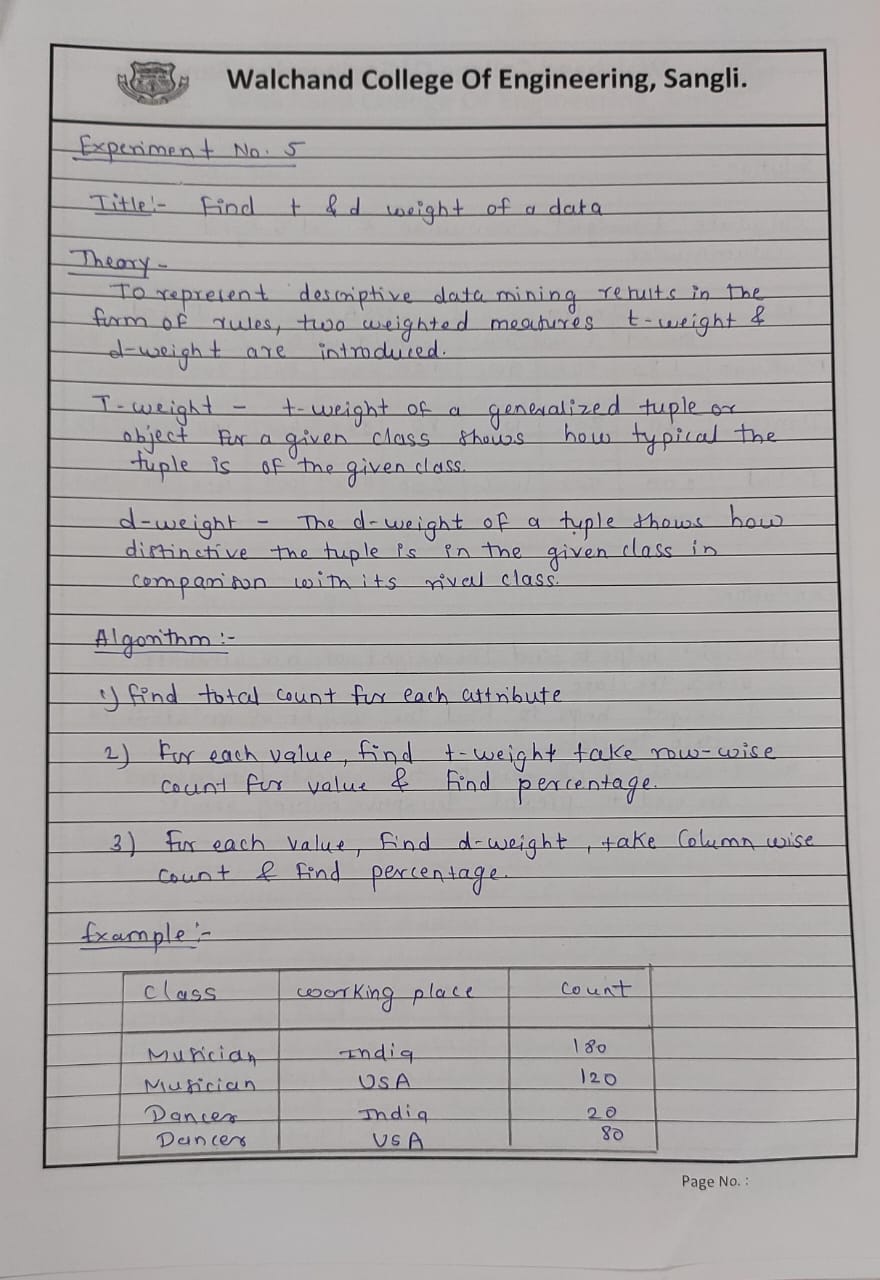 Walchand College Of Engineering, Sangli.
Experiment No. 5
Title:- Find t & d weight of a data
Theory -
To represent descriptive data mining results in the
form of rules, two weighted measures t-weight &
d-weight are introduced.
T-weight - t-weight of a generalized tuple or
object for a given class shows how typical the
tuple is of the given class.
d-weight - The d-weight of a tuple shows how
distinctive the tuple is in the given class in
comparison with its rival class.
Algorithm :-
1) find total count for each attribute
2) For each value, find t-weight take row-wise
count for value & find percentage.
3) For each value, find d-weight, take Column wise
count & find percentage.
Example :-
Class working place Count
Musician India 180
Musician USA 120
Dancer India 20
Dancer USA 80
Page No. :